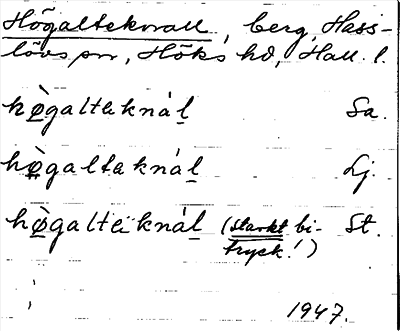 Högalteknall, berg, Hass-
lövs sn, Höks hd, Hall. l.
hø̀galtaknál Sa.
hø̀galtaknál Lj.
hø̀galtaknál (starkt bi- St.
tryck!)
1947.